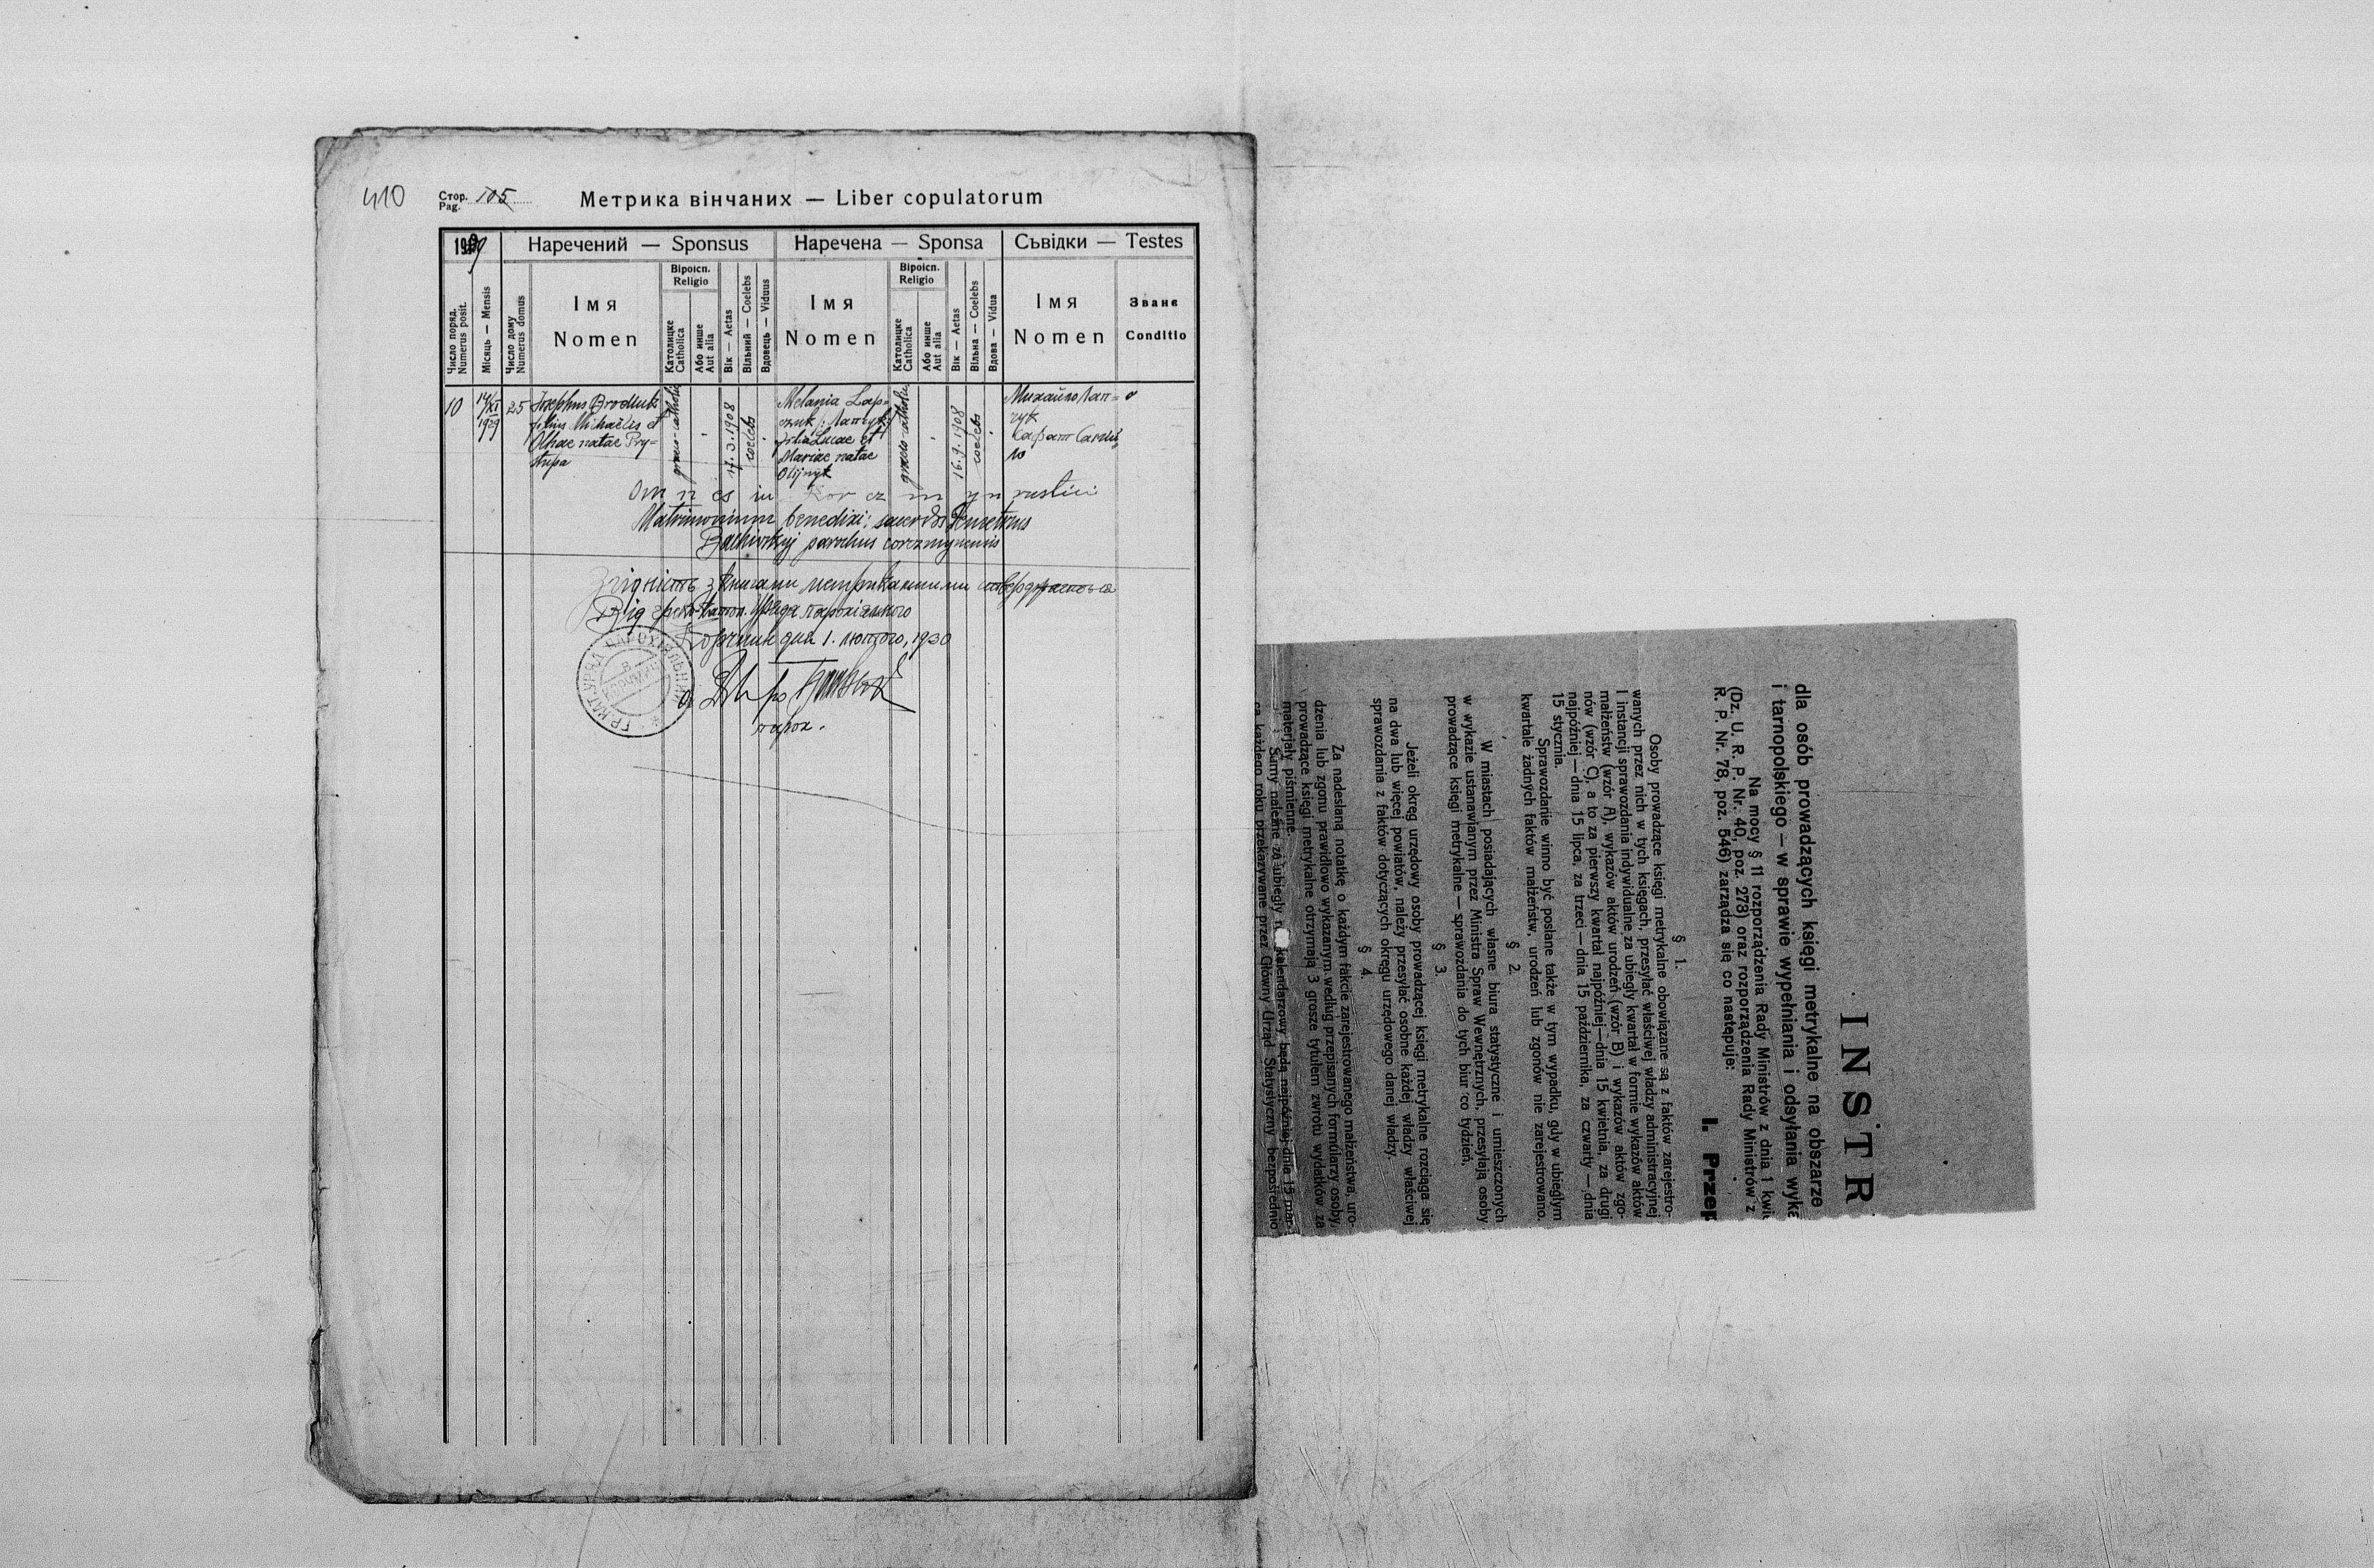 410
Стор. Pag. 105
Метрика вінчаних — Liber copulatorum
1929
Наречений — Sponsus
Наречена — Sponsa
Сьвідки — Testes
Число поряд. Numerus posit.
Місяць — Mensis
Число дому Numerus domus
Імя
Nomen
Віроісп. Religio
Католицке Catholica
Або инше Aut alia
Вік — Aetas
Вільний — Coelebs
Вдовець — Viduus
Імя
Nomen
Віроісп. Religio
Католицке Catholica
Або инше Aut alia
Вік — Aetas
Вільна — Coelebs
Вдова — Vidua
Імя
Nomen
Званє
Conditio
10
14/XI 1929
25
Josephus
filius Michaëlis et
Olhae natae Pry=
stupa
graeco-catholic
17.3.1908
coelebs
Melania Łap=
czuk
filia Lucae et
Mariae natae
Olijnyk
graeco-catholic
16.9.1908
coelebs
Михайло Лап=
чук
Omnes in Korczmyn rustici
Matrimonium benedixi: sacerdos Demetrius
parochus corczmynensis
Згідність з книгами метрикальними стверджаеться
Від греко-катол. Уряда парохіяльного
Корчмин дня 1. лютого, 1930
парох.
ГР. КАТ. УРЯД ПАРОХІЯЛЬНИЙ
В КОРЧМИНІ
INSTR
dla osób prowadzących księgi metrykalne na obszarze
i tarnopolskiego — w sprawie wypełniania i odsyłania wyka
Na mocy § 11 rozporządzenia Rady Ministrów z dnia 1 kwie
(Dz. U. R. P. Nr. 40, poz. 273) oraz rozporządzenia Rady Ministrów z
R. P. Nr. 78, poz. 546) zarządza się co następuje:
I. Przep
§ 1.
Osoby prowadzące księgi metrykalne obowiązane są z faktów zarejestro-
wanych przez nich w tych księgach, przesyłać właściwej władzy administracyjnej
I instancji sprawozdania indywidualne za ubiegły kwartał w formie wykazów aktów
małżeństw (wzór A), wykazów aktów urodzeń (wzór B) i wykazów aktów zgo-
nów (wzór C), a to za pierwszy kwartał najpóźniej—dnia 15 kwietnia, za drugi
najpóźniej—dnia 15 lipca, za trzeci—dnia 15 października, za czwarty—dnia
15 stycznia.
Sprawozdanie winno być posłane także w tym wypadku, gdy w ubiegłym
kwartale żadnych faktów małżeństw, urodzeń lub zgonów nie zarejestrowano.
§ 2.
W miastach posiadających własne biura statystyczne i umieszczonych
w wykazie ustanawianym przez Ministra Spraw Wewnętrznych, przesyłają osoby
prowadzące księgi metrykalne — sprawozdania do tych biur co tydzień.
§ 3.
Jeżeli okręg urzędowy osoby prowadzącej księgi metrykalne rozciąga się
na dwa lub więcej powiatów, należy przesyłać osobne każdej władzy właściwej
sprawozdania z faktów dotyczących okręgu urzędowego danej władzy.
§ 4.
Za nadesłaną notatkę o każdym fakcie zarejestrowanego małżeństwa, uro-
dzenia lub zgonu prawidłowo wykazanym według przepisanych formularzy osoby,
prowadzące księgi metrykalne otrzymają 3 grosze tytułem zwrotu wydatków za
materjały piśmienne.
Sumy należne za ubiegły rok kalendarzowy będą najpóźniej dnia 15 mar-
ca każdego roku przekazywane przez Główny Urząd Statystyczny bezpośrednio